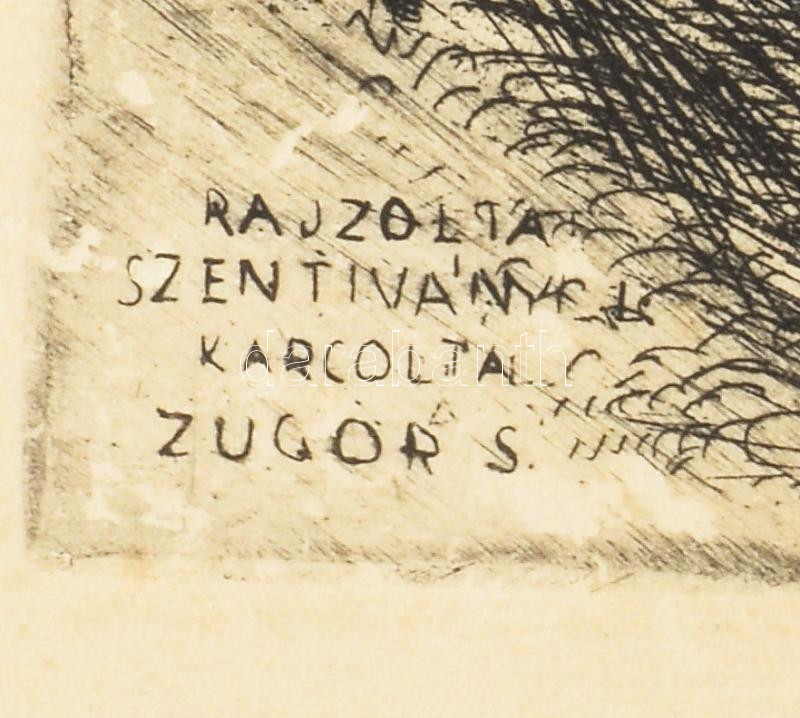 RAJZOLTA
SZENTIVÁNYI
KARCOLTA
ZUGOR S.
darabanth